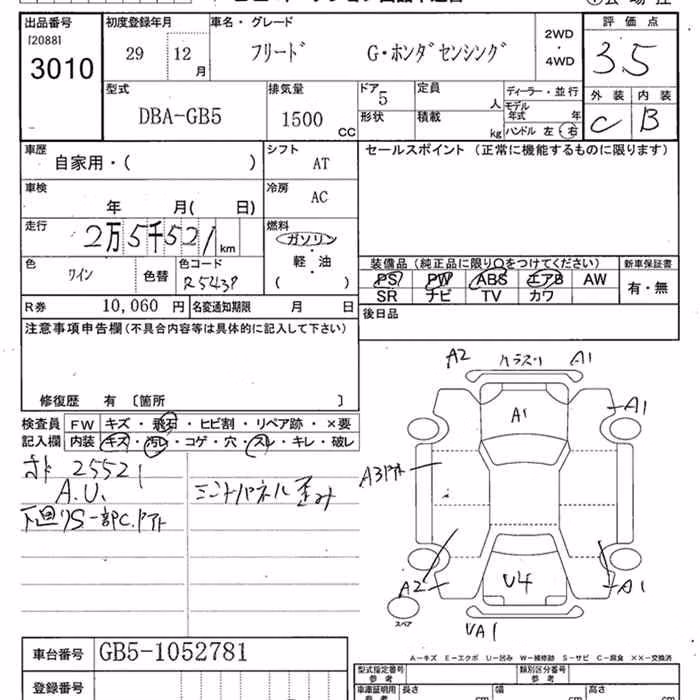 出品番号 初度登録年月 車名・グレード 2WD 評価点
[2088] 29 12月 フリード G・ホンダセンシング ・
3010 4WD 3.5
型式 排気量 ドア 定員 ディーラー・並行 外装 内装
DBA-GB5 1500 CC 5 人 モデル年式 年 C B
形状 積載 kg ハンドル 左 右
車歴 シフト セールスポイント (正常に機能するものに限ります)
自家用・( ) AT
車検 冷房
年 月( 日) AC
走行 燃料
2万5千521km ガソリン
軽・油
色 色替 色コード ( )
ワイン R543P
装備品 (純正品に限り○をつけてください) 新車保証書
PS PW ABS エアB AW 有・無
SR ナビ TV カワ
R券 10,060 円 名変通知期限 月 日 後日品
注意事項申告欄 (不具合内容等は具体的に記入して下さい)
修復歴 有 〔箇所 〕
検査員 FW キズ・飛石・ヒビ割・リペア跡・×要
記入欄 内装 キズ・汚レ・コゲ・穴・スレ・キレ・破レ
25521
A.U.
下廻りS 一部C.
歪み
A2 A1
A1 A1
A3
A2 U4 A1
スペア
UA1
A-キズ E-エクボ U-凹み W-補修跡 S-サビ C-腐食 ××-交換済
車台番号 GB5-1052781
登録番号
型式指定番号 参考 類別区分番号 参考
車庫証明用 参考 長さ cm 幅 cm 高さ cm